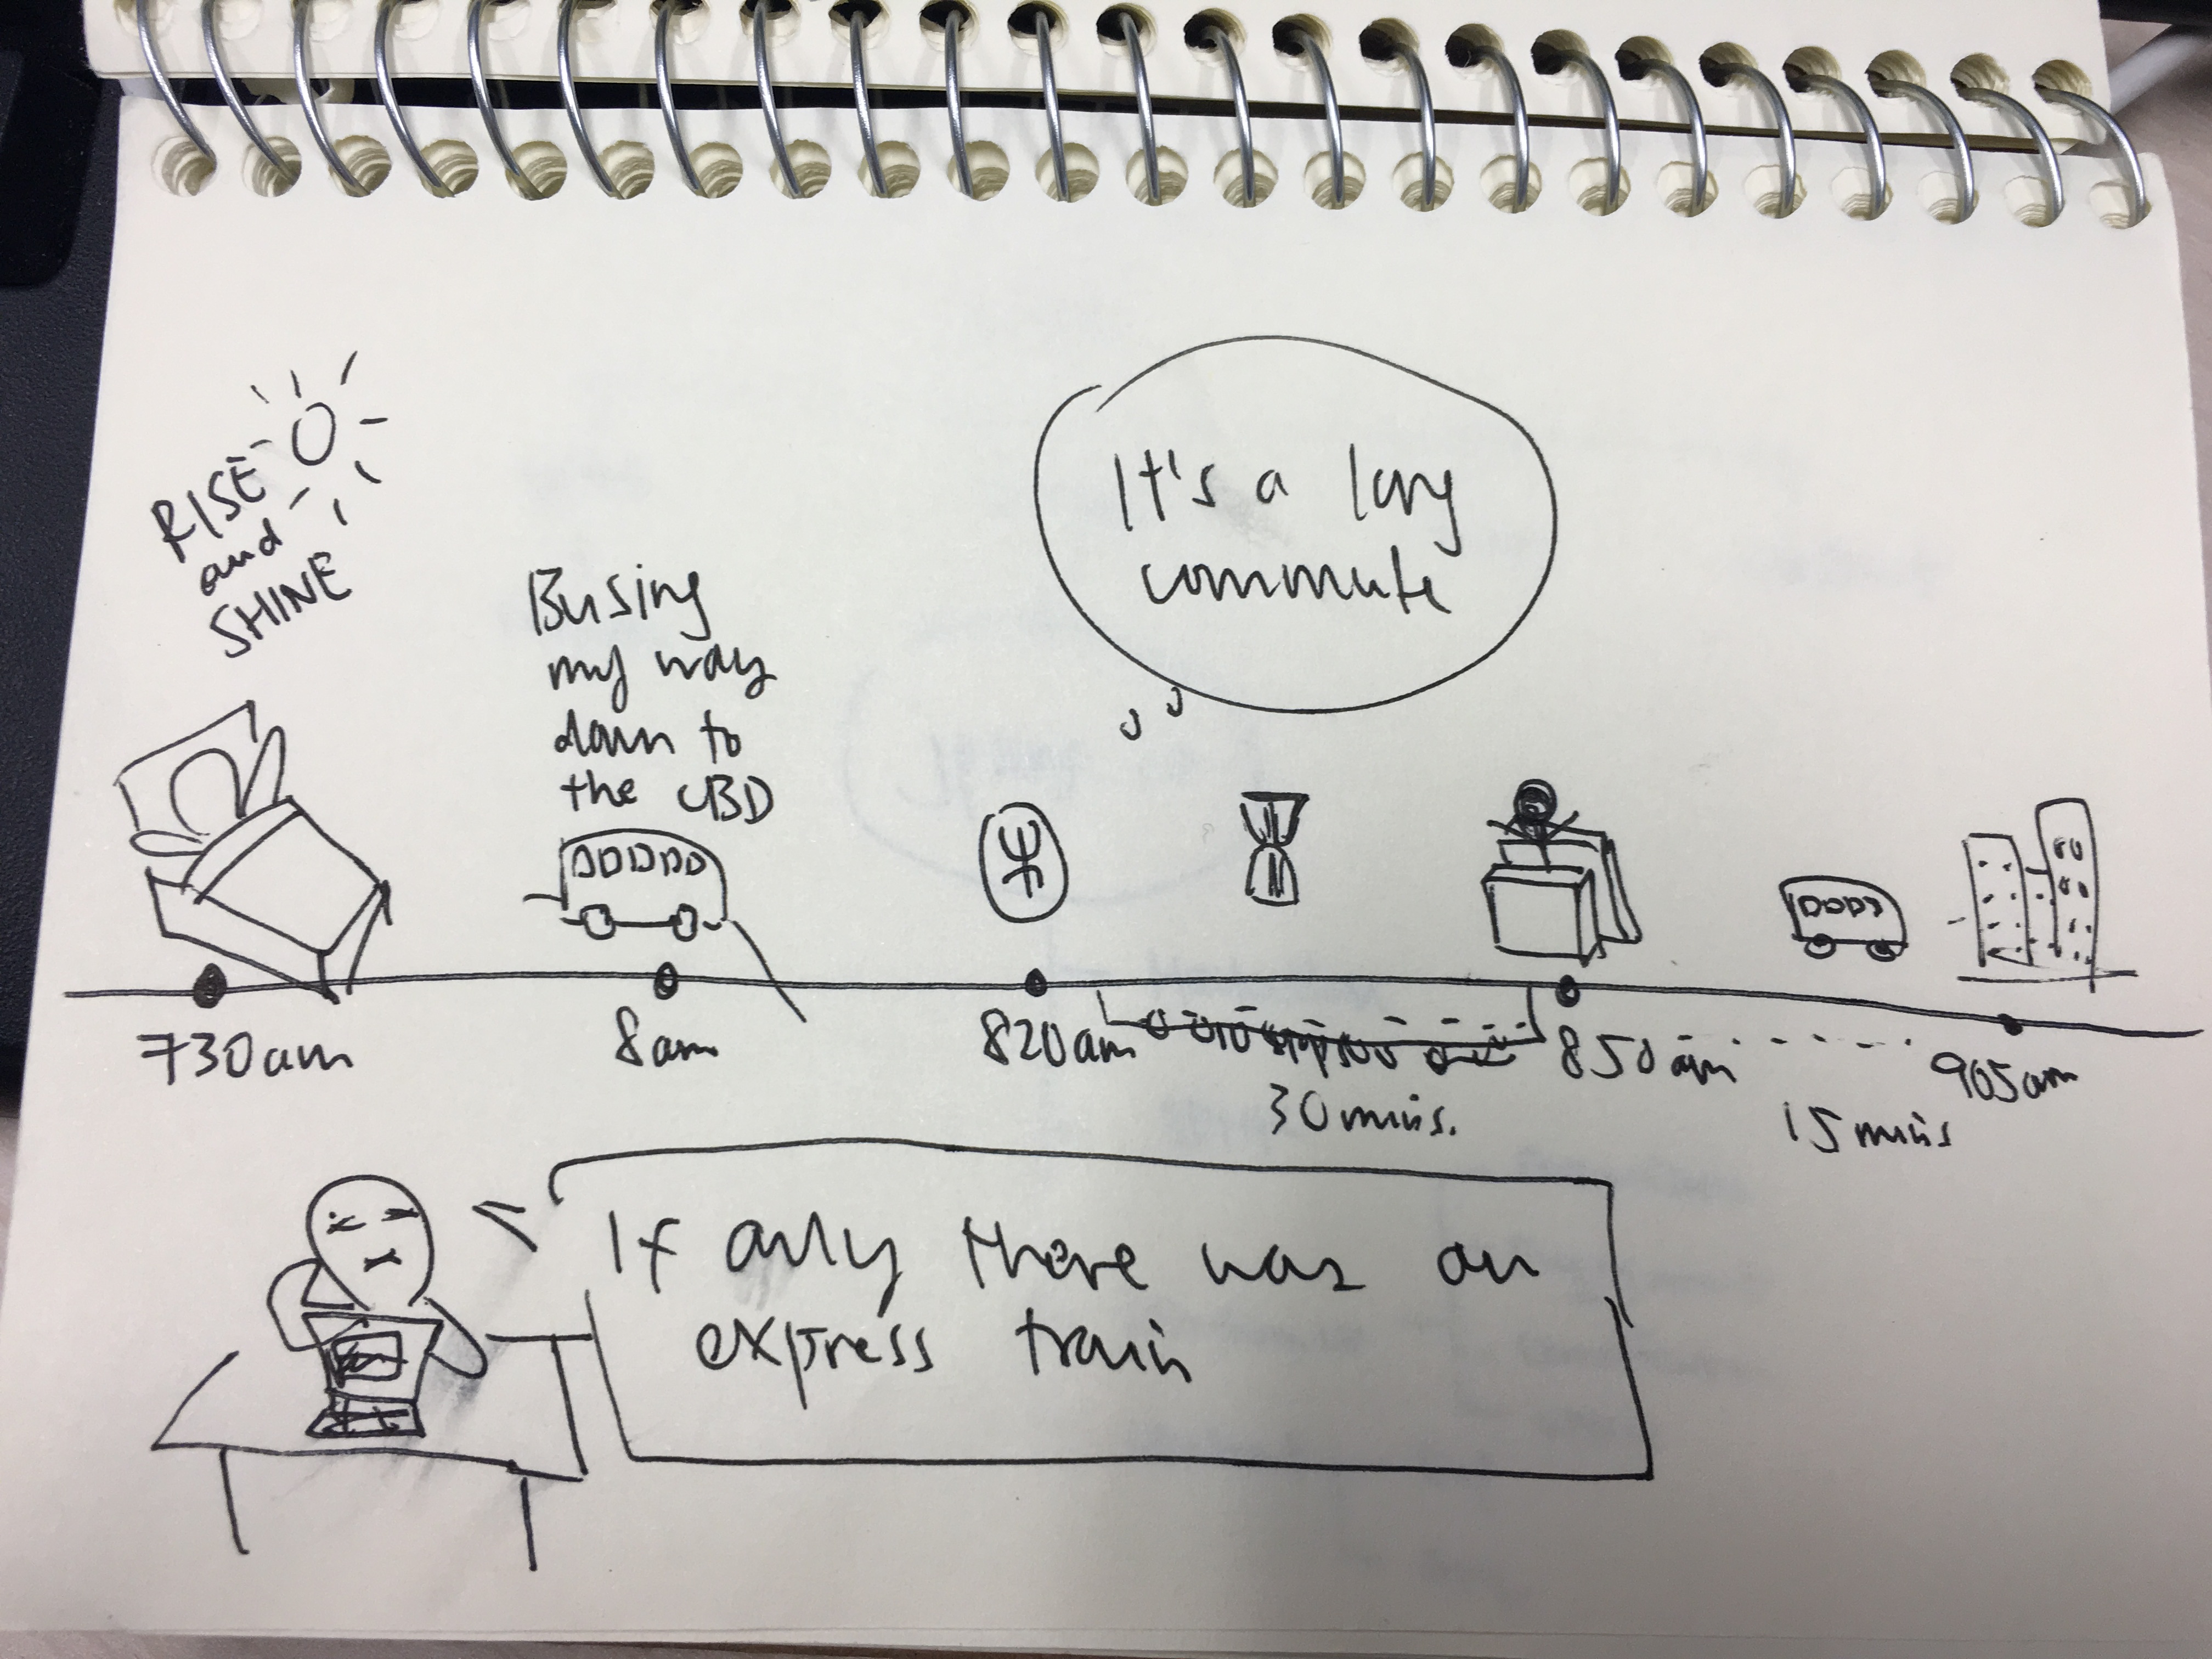 RISE
and
SHINE
Busing
my way
down to
the CBD
It's a long
commute
730am
8am
820am
850am
905am
30 mins.
15 mins
If only there was an
express train